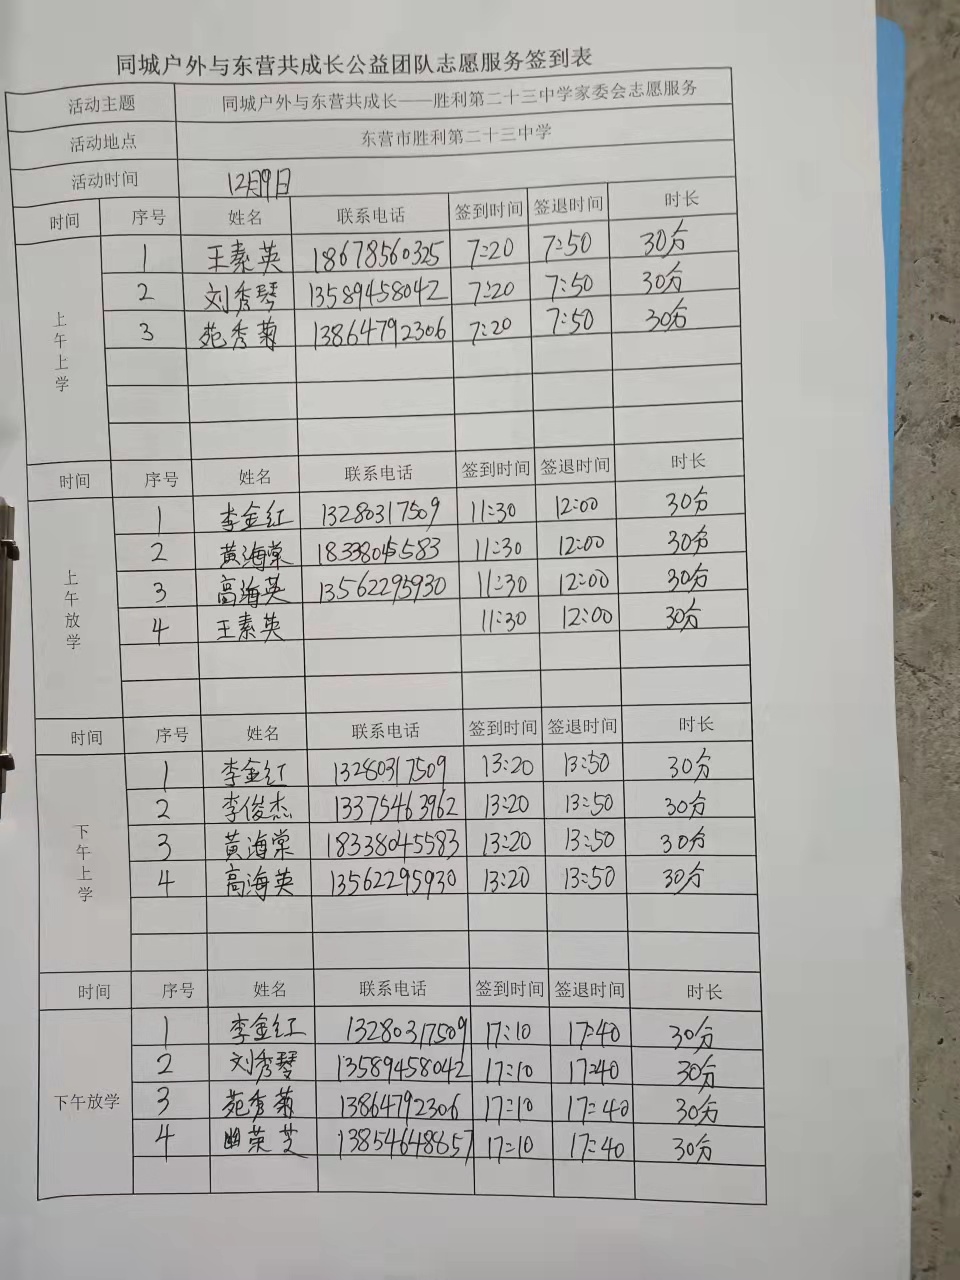 同城户外与东营共成长公益团队志愿服务签到表
活动主题 同城户外与东营共成长——胜利第二十三中学家委会志愿服务
活动地点 东营市胜利第二十三中学
活动时间 12月9日
时间 序号 姓名 联系电话 签到时间 签退时间 时长
上午上学
1 王素英 18678560325 7:20 7:50 30分
2 刘秀琴 13589458042 7:20 7:50 30分
3 苑秀菊 13864792306 7:20 7:50 30分
时间 序号 姓名 联系电话 签到时间 签退时间 时长
上午放学
1 李金红 13280317509 11:30 12:00 30分
2 黄海棠 18338045583 11:30 12:00 30分
3 高海英 13562295930 11:30 12:00 30分
4 王素英 11:30 12:00 30分
时间 序号 姓名 联系电话 签到时间 签退时间 时长
下午上学
1 李金红 13280317509 13:20 13:50 30分
2 李俊杰 13375463962 13:20 13:50 30分
3 黄海棠 18338045583 13:20 13:50 30分
4 高海英 13562295930 13:20 13:50 30分
时间 序号 姓名 联系电话 签到时间 签退时间 时长
下午放学
1 李金红 13280317509 17:10 17:40 30分
2 刘秀琴 13589458042 17:10 17:40 30分
3 苑秀菊 13864792306 17:10 17:40 30分
4 荣芝 13854648657 17:10 17:40 30分